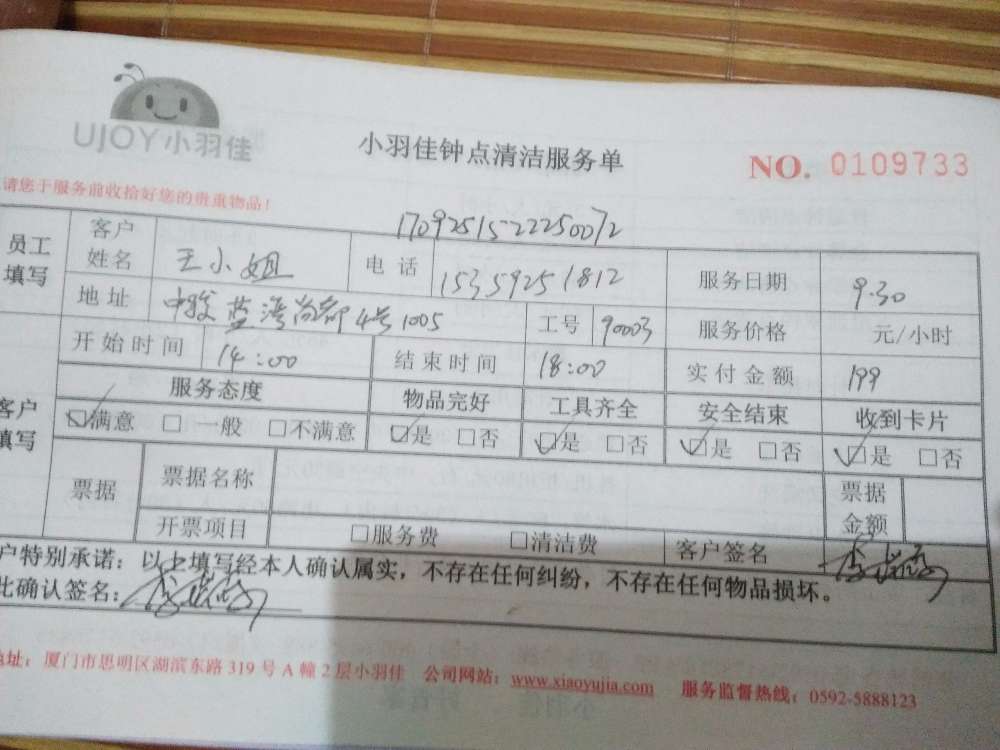 UJOY小羽佳
小羽佳钟点清洁服务单
NO. 0109733
请您于服务前收拾好您的贵重物品!
1709251522250072
员工填写 客户姓名 王小姐 电话 15359251812 服务日期 9.30
地址 中骏蓝湾尚都4号1005 工号 90003 服务价格 元/小时
开始时间 14:00 结束时间 18:00 实付金额 199
客户填写 服务态度 物品完好 工具齐全 安全结束 收到卡片
☑满意 □一般 □不满意 ☑是 □否 ☑是 □否 ☑是 □否 ☑是 □否
票据 票据名称 票据金额
开票项目 □服务费 □清洁费 客户签名
户特别承诺:以上填写经本人确认属实,不存在任何纠纷,不存在任何物品损坏。
此确认签名:
地址:厦门市思明区湖滨东路319号A幢2层小羽佳 公司网站:www.xiaoyujia.com 服务监督热线:0592-5888123